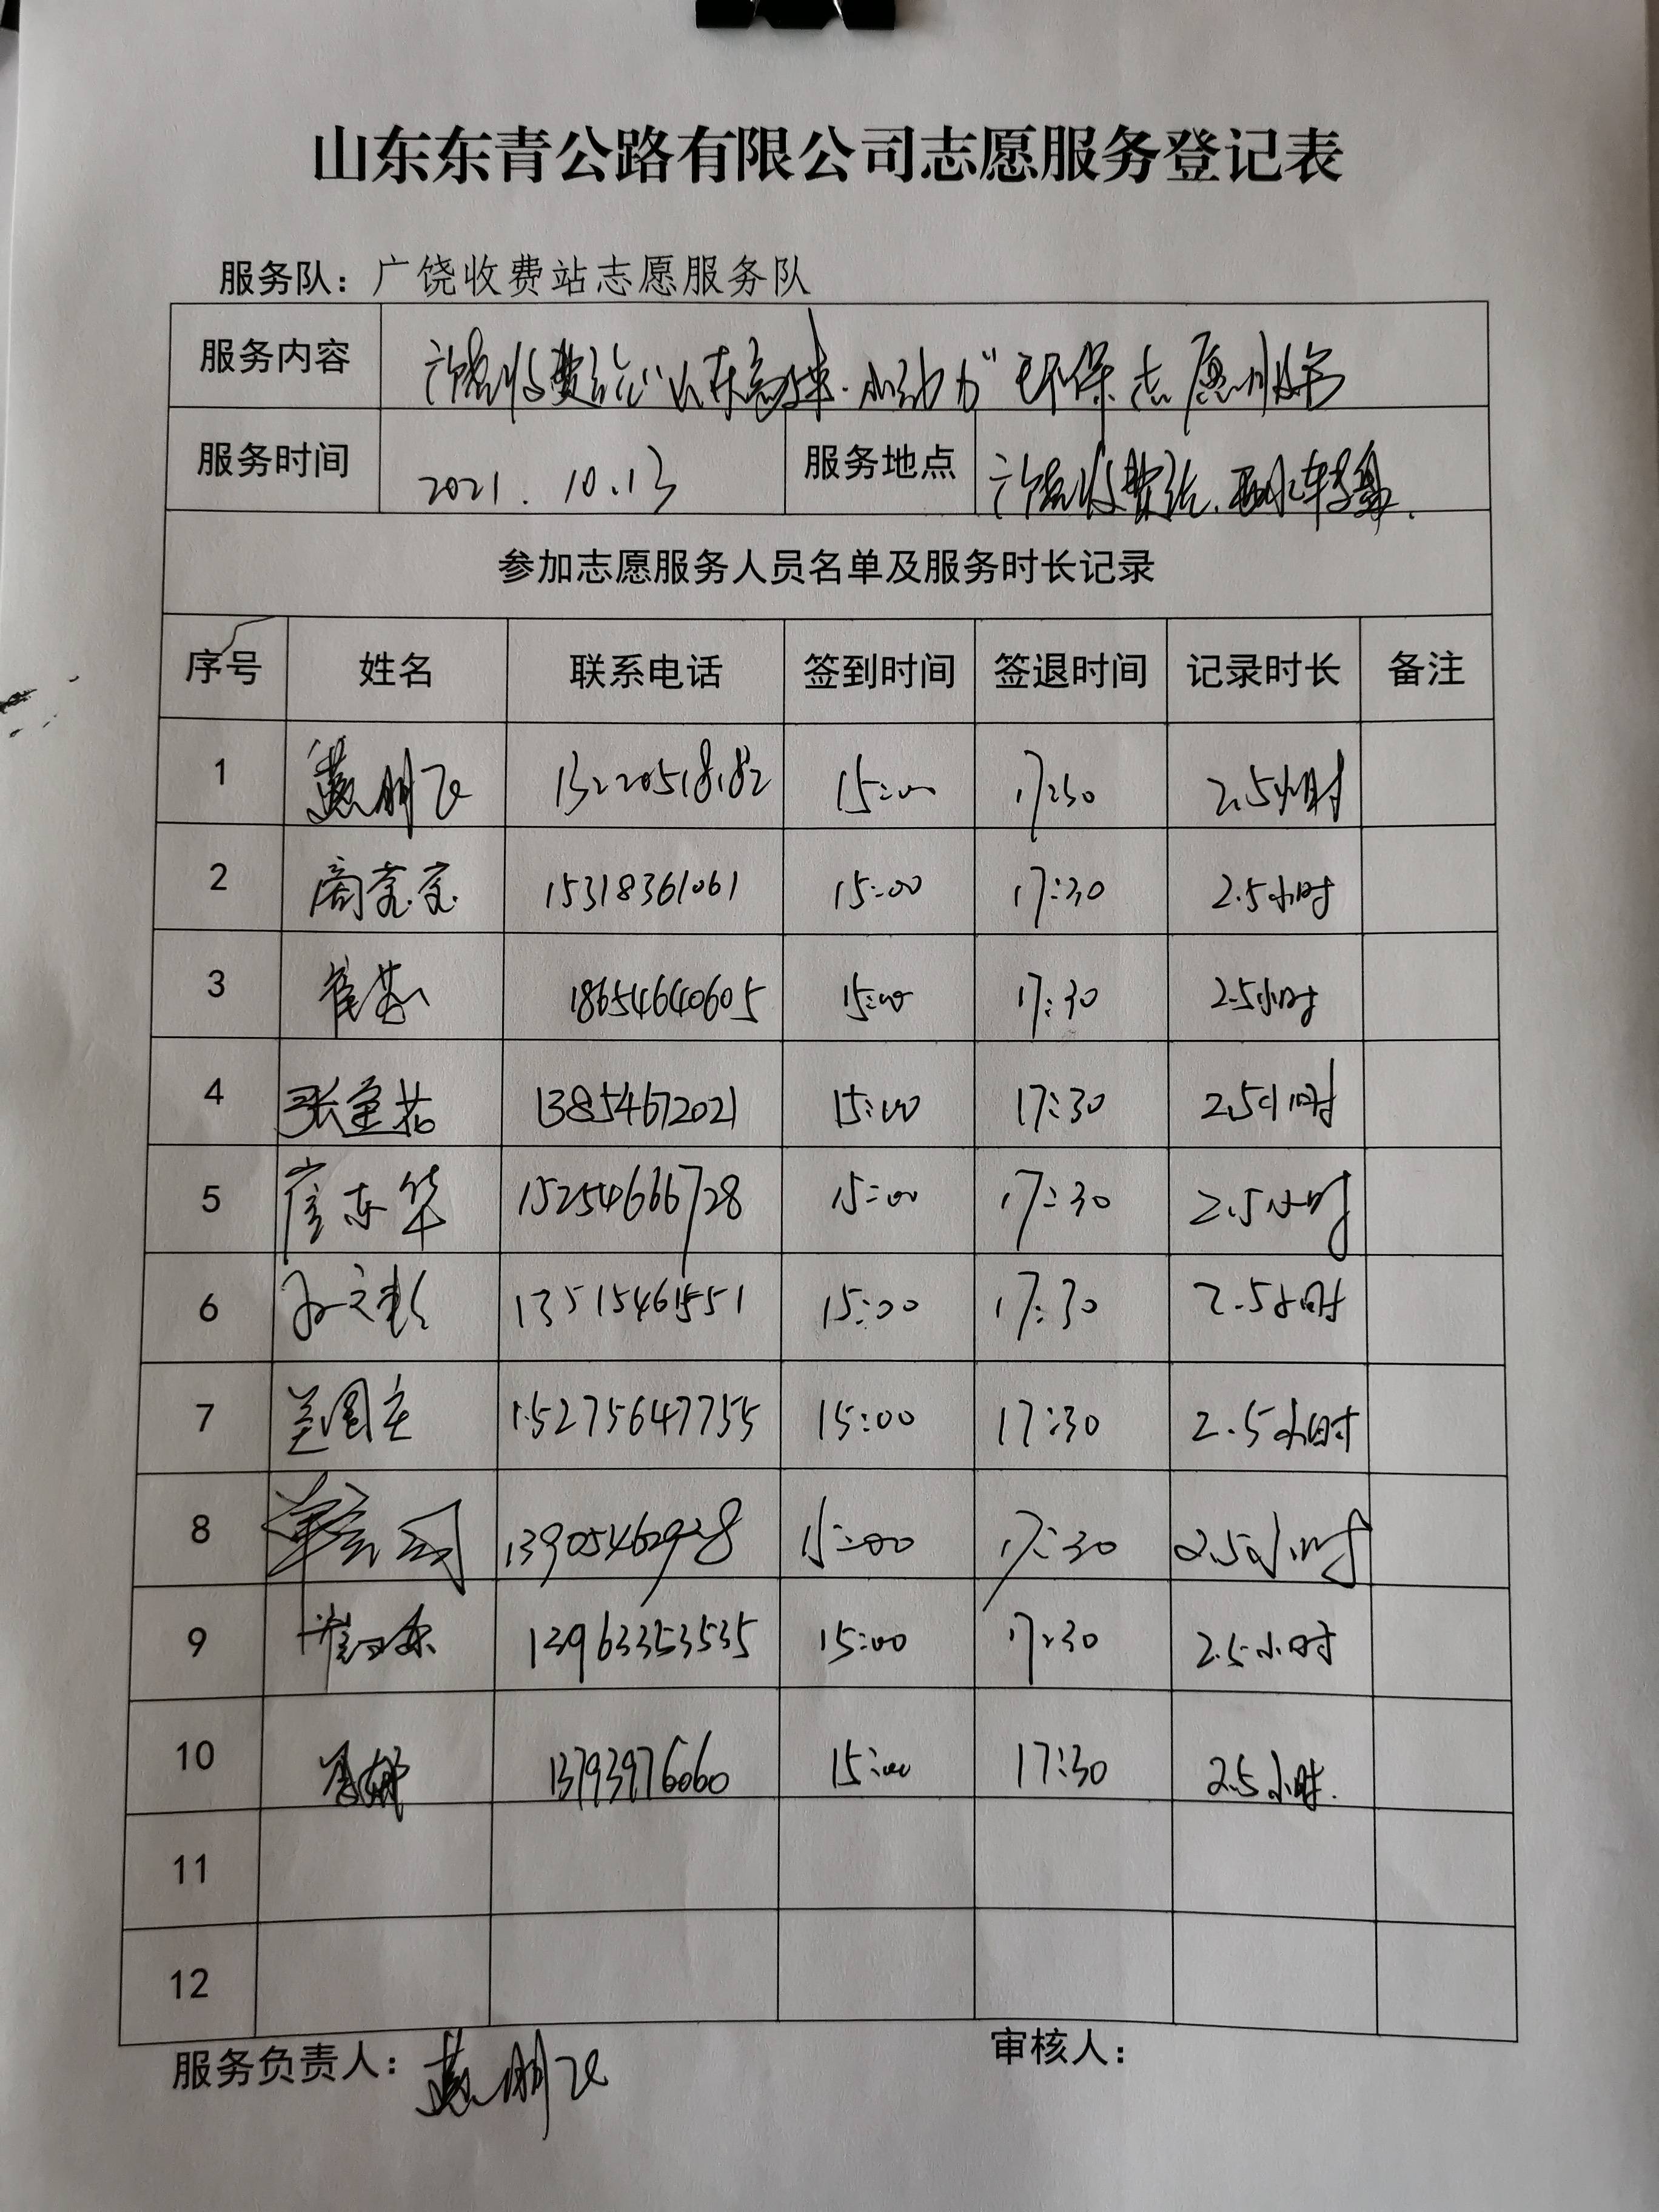 山东东青公路有限公司志愿服务登记表
服务队：广饶收费站志愿服务队
服务内容 广饶收费站"山东高速·小动力"环保志愿服务
服务时间 2021.10.13 服务地点 广饶收费站、
参加志愿服务人员名单及服务时长记录
序号 姓名 联系电话 签到时间 签退时间 记录时长 备注
1 13220518182 15:00 17:30 2.5小时
2 15318361061 15:00 17:30 2.5小时
3 18654640605 15:00 17:30 2.5小时
4 13854672021 15:00 17:30 2.5小时
5 崔东华 15254666728 15:00 17:30 2.5小时
6 13515461551 15:00 17:30 2.5小时
7 15275647755 15:00 17:30 2.5小时
8 13905462928 15:00 17:30 2.5小时
9 13963353535 15:00 17:30 2.5小时
10 13793976060 15:00 17:30 2.5小时.
11
12
服务负责人： 审核人：